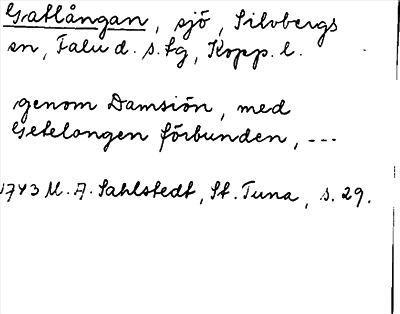 Gatlången, sjö, Silvbergs
sn, Falu d. s. tg, Kopp. l.
genom Damsiön, med
Getelangen förbunden, ---
1743 M. A. Sahlstedt, St. Tuna, s. 29.